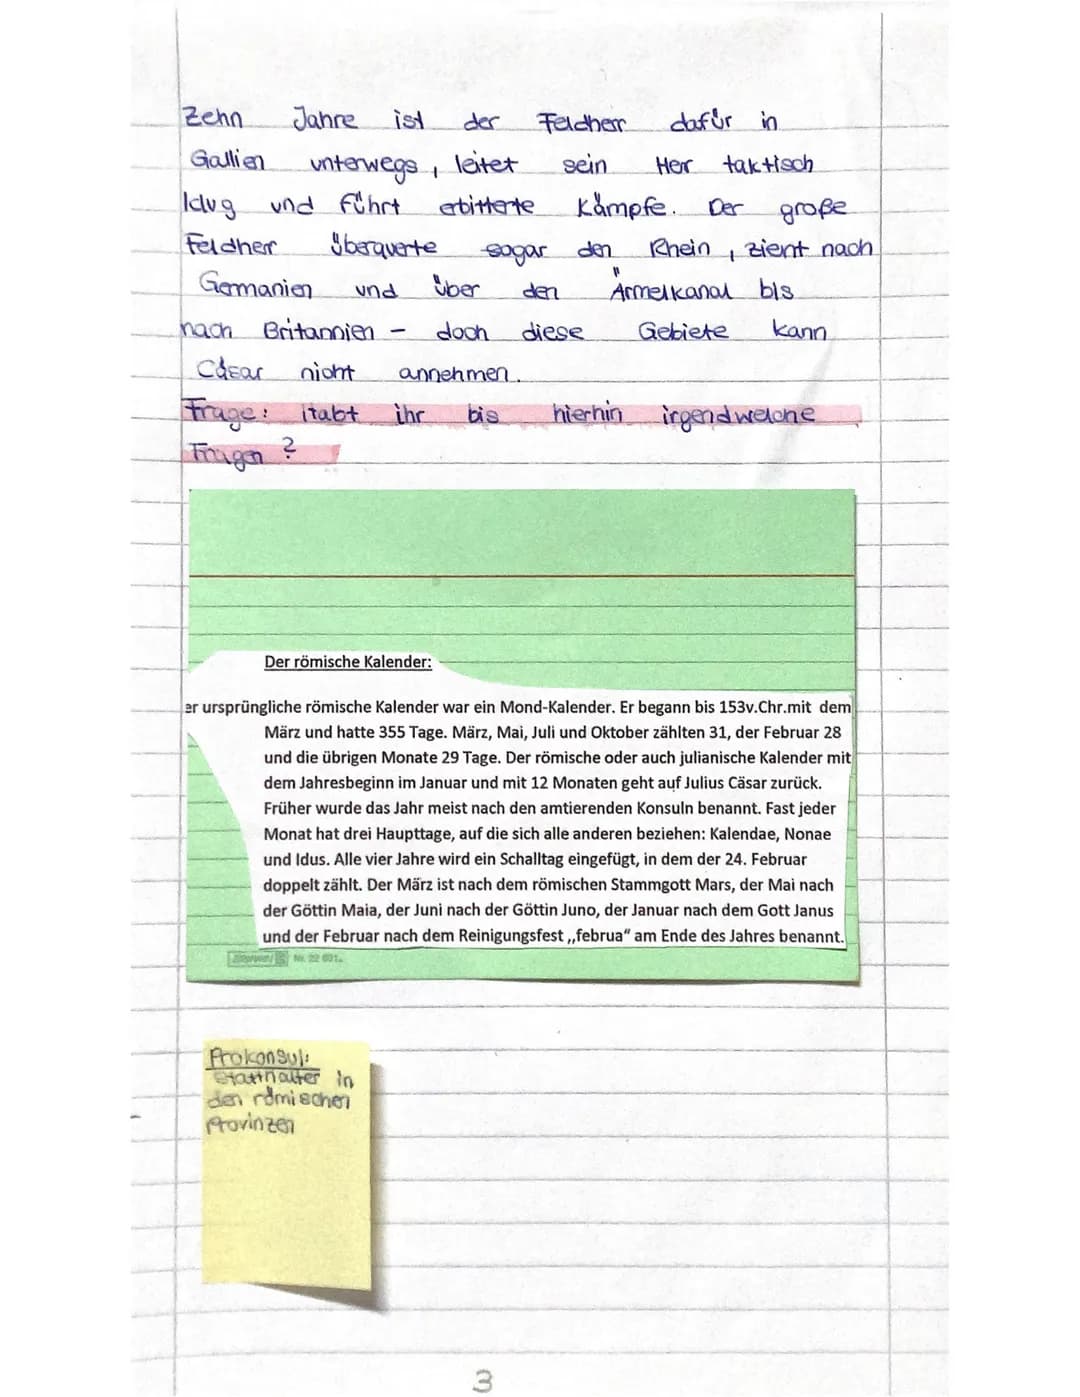 Zehn Jahre ist der Feldherr dafür in
Gallien unterwegs, leitet sein Her taktisch
klug und führt erbitterte Kämpfe. Der große
Feldherr überquerte sogar den Rhein, zieht nach
Germanien und über den Ärmelkanal bis
nach Britannien - doch diese Gebiete kann
Cäsar nicht annehmen.
Frage: Habt ihr bis hierhin irgendwelche
Fragen?
Der römische Kalender:
er ursprüngliche römische Kalender war ein Mond-Kalender. Er begann bis 153v.Chr.mit dem
März und hatte 355 Tage. März, Mai, Juli und Oktober zählten 31, der Februar 28
und die übrigen Monate 29 Tage. Der römische oder auch julianische Kalender mit
dem Jahresbeginn im Januar und mit 12 Monaten geht auf Julius Cäsar zurück.
Früher wurde das Jahr meist nach den amtierenden Konsuln benannt. Fast jeder
Monat hat drei Haupttage, auf die sich alle anderen beziehen: Kalendae, Nonae
und Idus. Alle vier Jahre wird ein Schalltag eingefügt, in dem der 24. Februar
doppelt zählt. Der März ist nach dem römischen Stammgott Mars, der Mai nach
der Göttin Maia, der Juni nach der Göttin Juno, der Januar nach dem Gott Janus
und der Februar nach dem Reinigungsfest ,,februa" am Ende des Jahres benannt.
Nr. 22 601
Prokonsul:
Statthalter in
den römischen
Provinzen
3